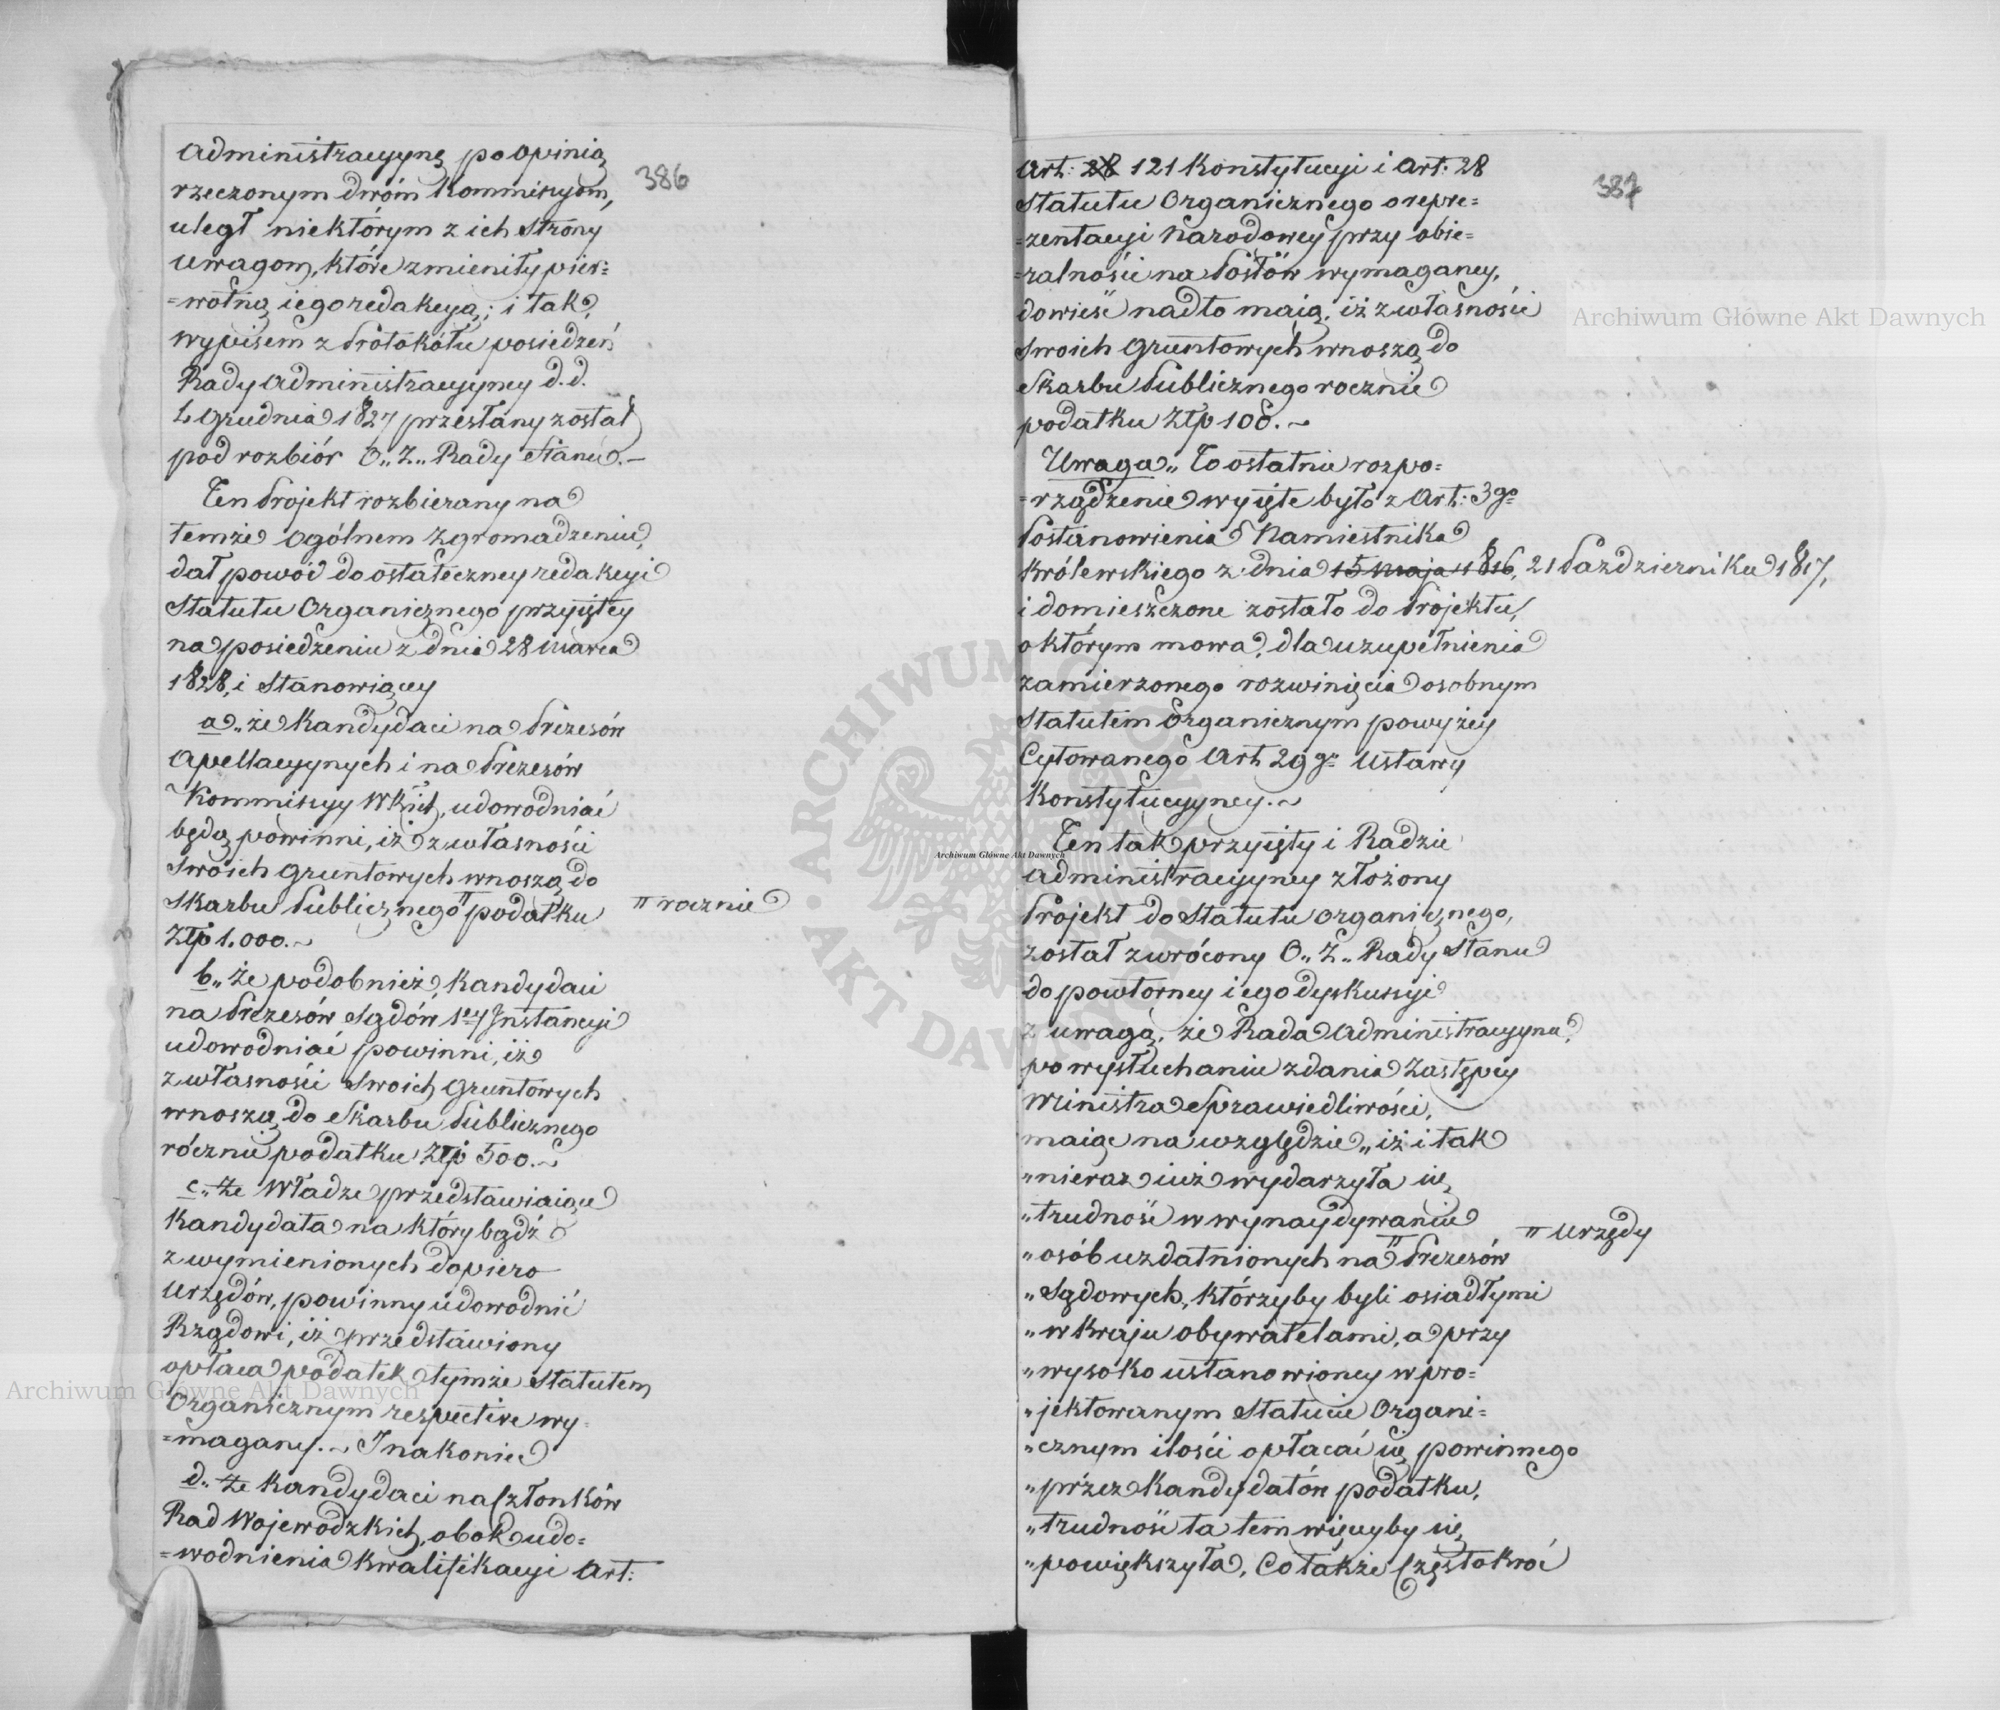 386
administracyyną po opinią
rzeczonym dwóm Kommissyom,
uległ niektórym z ich Strony
Uwagom, które zmieniły pier=
=wotną iego redakcyą; i tak,
wypisem z Protokółu posiedzeń
Rady administracyyney d. d.
4 Grudnia 1827 przesłany został
pod rozbiór O„ Z„ Rady Stanu.—
Ten Projekt rozbierany na
temże Ogólnem Zgromadzeniu,
dał powód do ostateczney redakcyi
Statutu Organicznego przyiętey
na posiedzeniu z dnia 28 Marca
1828, i Stanowiący
a„ że Kandydaci na Prezesów
Apellacyynych i na Prezesów
Kommissyy Wkich, udowodniać
będą powinni, iż z własności
Swoich Gruntowych wnoszą do
Skarbu Publicznego ᴨ podatku
ᴨ rocznie
Złp 1.000.~
b„ że podobnież, Kandydaci
na Prezesów Sądów 1ey Instancyi
udowodniać powinni, iż
z własności Swoich Gruntowych
wnoszą do Skarbu Publicznego
rócznie podatku Złp 500.~
c„ że Władze przedstawiaiące
Kandydata na który bądź
z wymienionych dopiero
Urzędów, powinny udowodnić
Rządowi, iż przedstawiony
opłaca podatek tymże Statutem
Organicznym respective wy=
=magany.~ Inakoniec
d„ że Kandydaci na Członków
Rad Wojewódzkich, obok udo=
=wodnienia Kwalifikacyi Art:
387
Art: 28 121 Konstytucyi i Art: 28
Statutu Organicznego o repre=
=zentacyi Narodowey przy obie=
=ralności na Posłów wymaganey,
dowieść nadto maią, iż z własności
Swoich Gruntowych wnoszą do
Skarbu Publicznego rocznie
podatku Złp 100.~
Uwaga„ To ostatnie rozpo=
=rządzenie wyięte było z Art: 3go
Postanowienia Namiestnika
Królewskiego z dnia 15 Maja 1816, 21 Października 1817,
i domieszczone zostało do Projektu,
o którym mowa, dla uzupełnienia
zamierzonego rozwinięcia osobnym
Statutem Organicznym powyżey
Cytowanego Art 29go Ustawy
Konstytucyyney.~
Ten tak przyięty i Radzie
administracyyney złożony
Projekt do Statutu Organicznego,
został zwrócony O„ Z„ Rady Stanu
do powtorney iego dyskussyi
z uwagą, że Rada Administracyyna,
po wysłuchaniu zdania Zastępcy
Ministra Sprawiedliwości,
maiąc na względzie „iż i tak
„nieraz iuż wydarzyła się
„trudność w wynaydywaniu
„osób uzdatnionych na ᴨ Prezesów
ᴨ Urzędy
„Sądowych, którzyby byli osiadłymi
„w Kraju obywatelami, a przy
„wysoko ustanowioney w pro=
„jektowanym Statucie Organi=
„cznym ilości opłacać się powinnego
„przez Kandydatów podatku,
„trudność ta tem więcyby się
„powiększyła, Co także Częstokroć
Archiwum Główne Akt Dawnych
Archiwum Główne Akt Dawnych
Archiwum Główne Akt Dawnych
ARCHIWUM GŁÓWNE AKT DAWNYCH